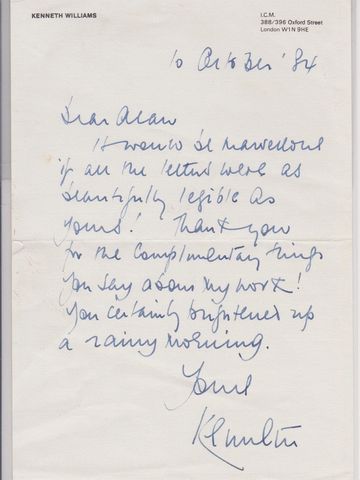 KENNETH WILLIAMS
I.C.M.
388/396 Oxford Street
London W1N 9HE
10 October '84
Dear Alan
It would be marvellous
if all the letters were as
beautifully legible as
yours! Thank you
for the complimentary things
you say about my work!
You certainly brightened up
a rainy morning.
Yours
Kenneth